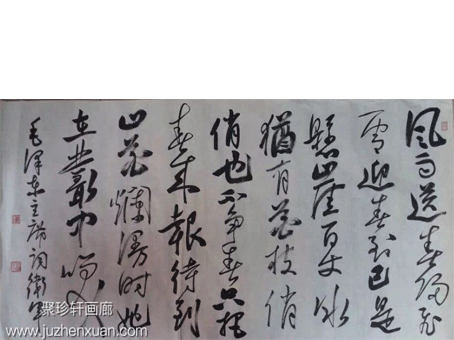 风雨送春归飞
雪迎春到已是
懸崖百丈冰
猶有花枝俏
俏也不争春只把
春来報待到
山花爛漫时她
在叢中笑
毛泽东主席词衛軍
聚珍轩画廊
www.juzhenxuan.com